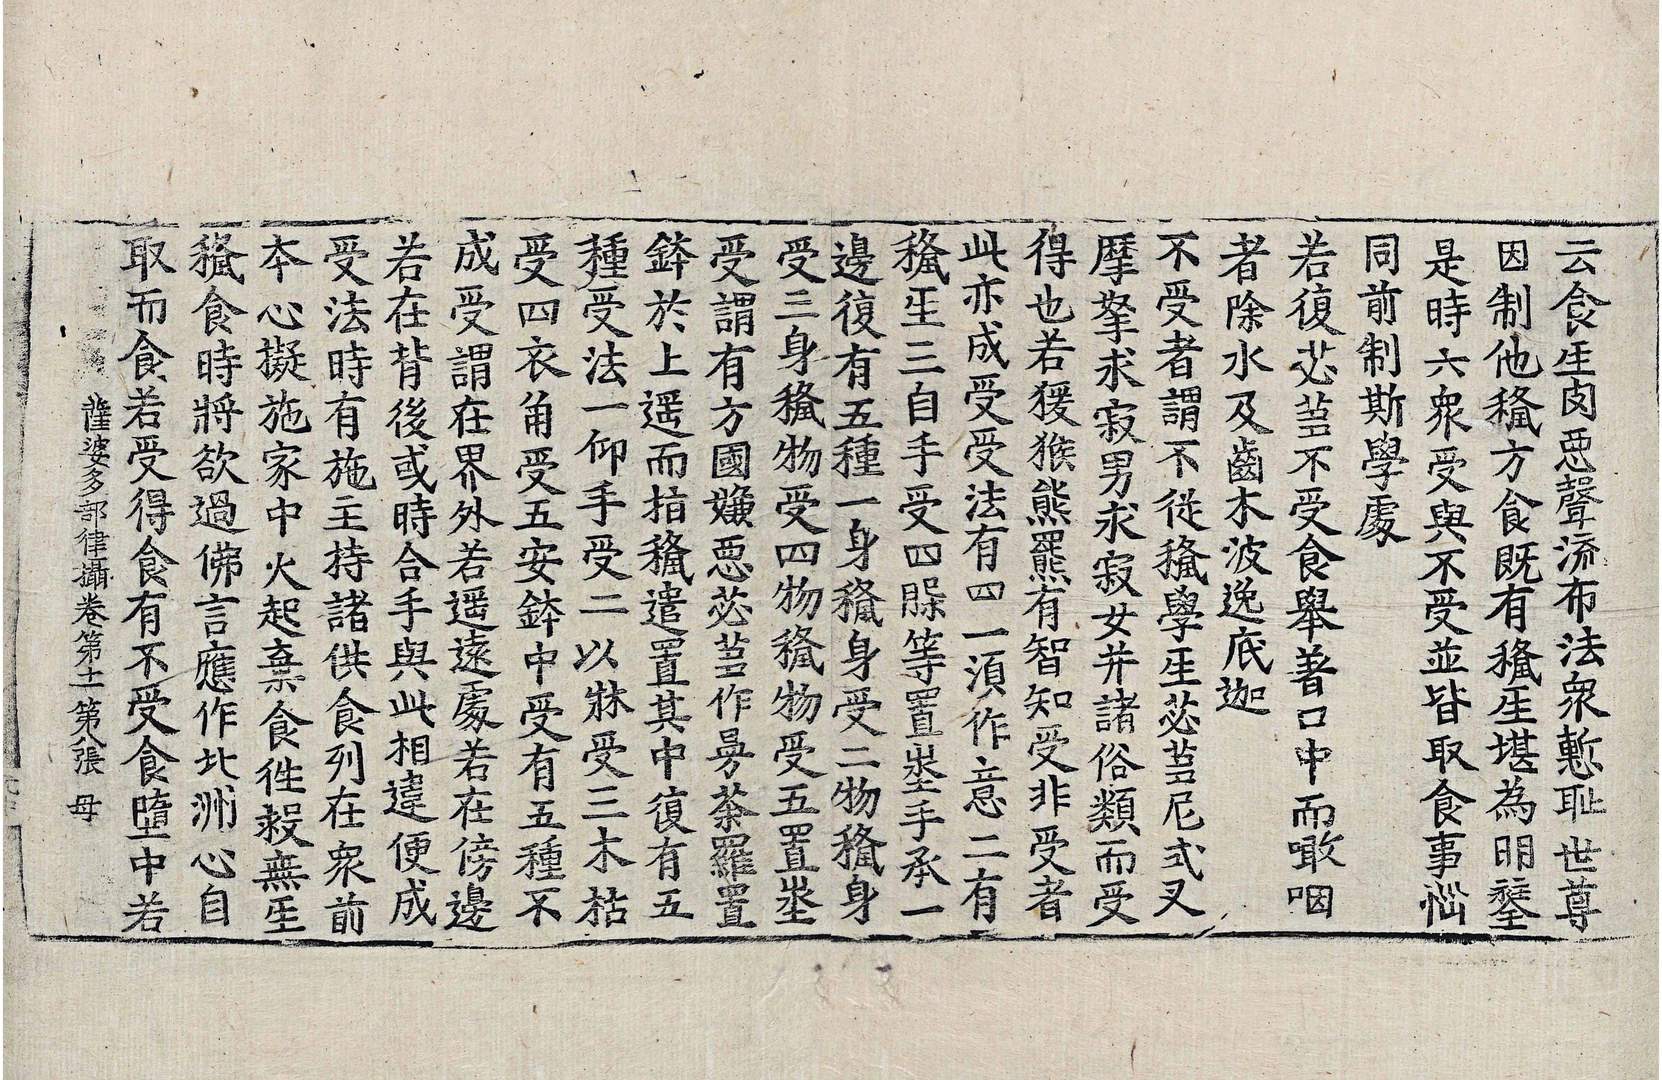 云食𤯔肉惡聲流布法衆慙耻世尊
因制他𥠢方食既有𥠢𤯔堪為明𨭻
是時六衆受與不受並皆取食事惱
同前制斯學處
若復苾芻不受食舉著口中而噉咽
者除水及齒木波逸底迦
不受者謂不從𥠢學𤯔苾芻尼式叉
摩拏求寂男求寂女并諸俗類而受
得也若猨猴熊羆有智知受非受者
此亦成受受法有四一須作意二有
𥠢𤯔三自手受四躶等置埊手承一
邊復有五種一身𥠢身受二物𥠢身
受三身𥠢物受四物𥠢物受五置埊
受謂有方國嫌惡苾芻作曼荼羅置
鉢於上遥而指𥠢遣置其中復有五
種受法一仰手受二以牀受三木枯
受四衣角受五安鉢中受有五種不
成受謂在界外若遥遠處若在傍邊
若在背後或時合手與此相違便成
受法時有施主持諸供食列在衆前
本心擬施家中火起棄食徃救無𤯔
𥠢食時將欲過佛言應作北洲心自
取而食若受得食有不受食墮中若
薩婆多部律攝卷第十一 第八張 母